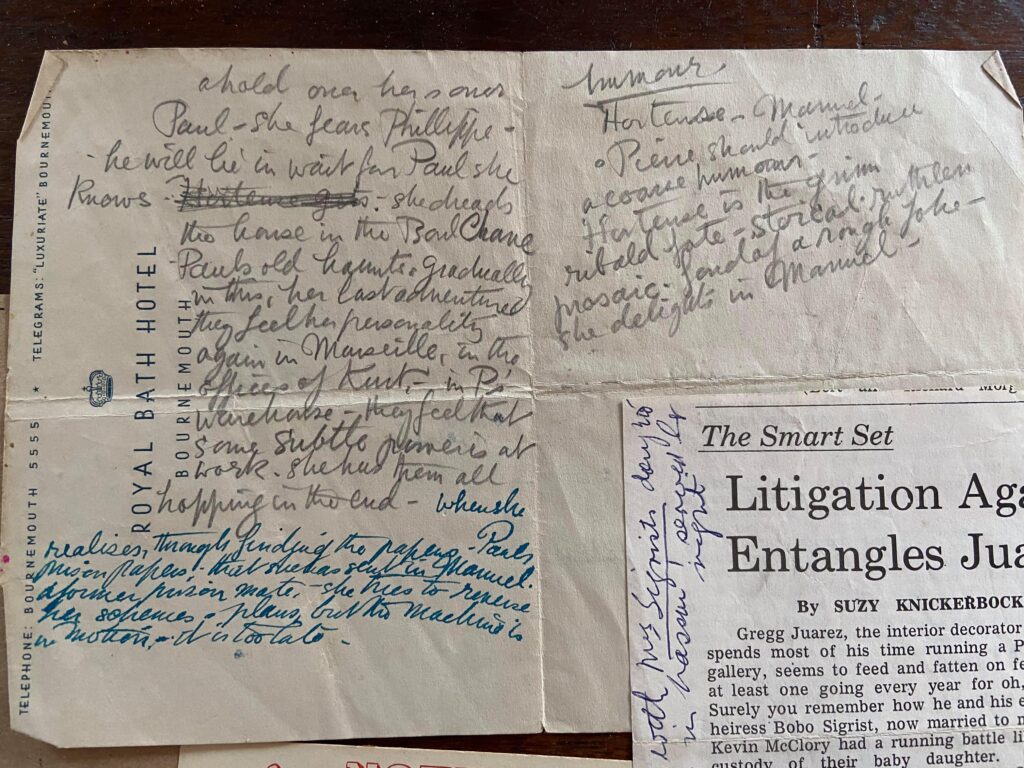 a hold over her son
Paul - she fears Phillippe -
he will lie in wait for Paul she
knows - she dreads
the house in the
Paul's old haunts. gradually
in this, her last adventure
they feel her personality
again in Marseille, in the
offices of Kurt - in P's
warehouse - they feel that
some subtle power is at
work. she has them all
hopping in the end - when she
realises, through finding the papers - Paul's
prison papers, that she has sent in Manuel.
a former prison mate, - she tries to reverse
her schemes & plans, but the machine is
in motion, - it is too late -
humour
Hortense - Manuel -
Pierre should introduce
a coarse humour -
Hortense is the grim
ribald fate - stoical. ruthless
prosaic. fond of a rough joke -
she delights in Manuel -
TELEPHONE: BOURNEMOUTH 5555 * TELEGRAMS: "LUXURIATE" BOURNEMOU
ROYAL BATH HOTEL
BOURNEMOUTH
with Mrs Sigrists
in nassau, served
night
The Smart Set
Litigation Aga
Entangles Jua
By SUZY KNICKERBOCK
Gregg Juarez, the interior decorator
spends most of his time running a P
gallery, seems to feed and fatten on fe
at least one going every year for oh,
Surely you remember how he and his e
heiress Bobo Sigrist, now married to m
Kevin McClory had a running battle li
custody of their baby daughter.